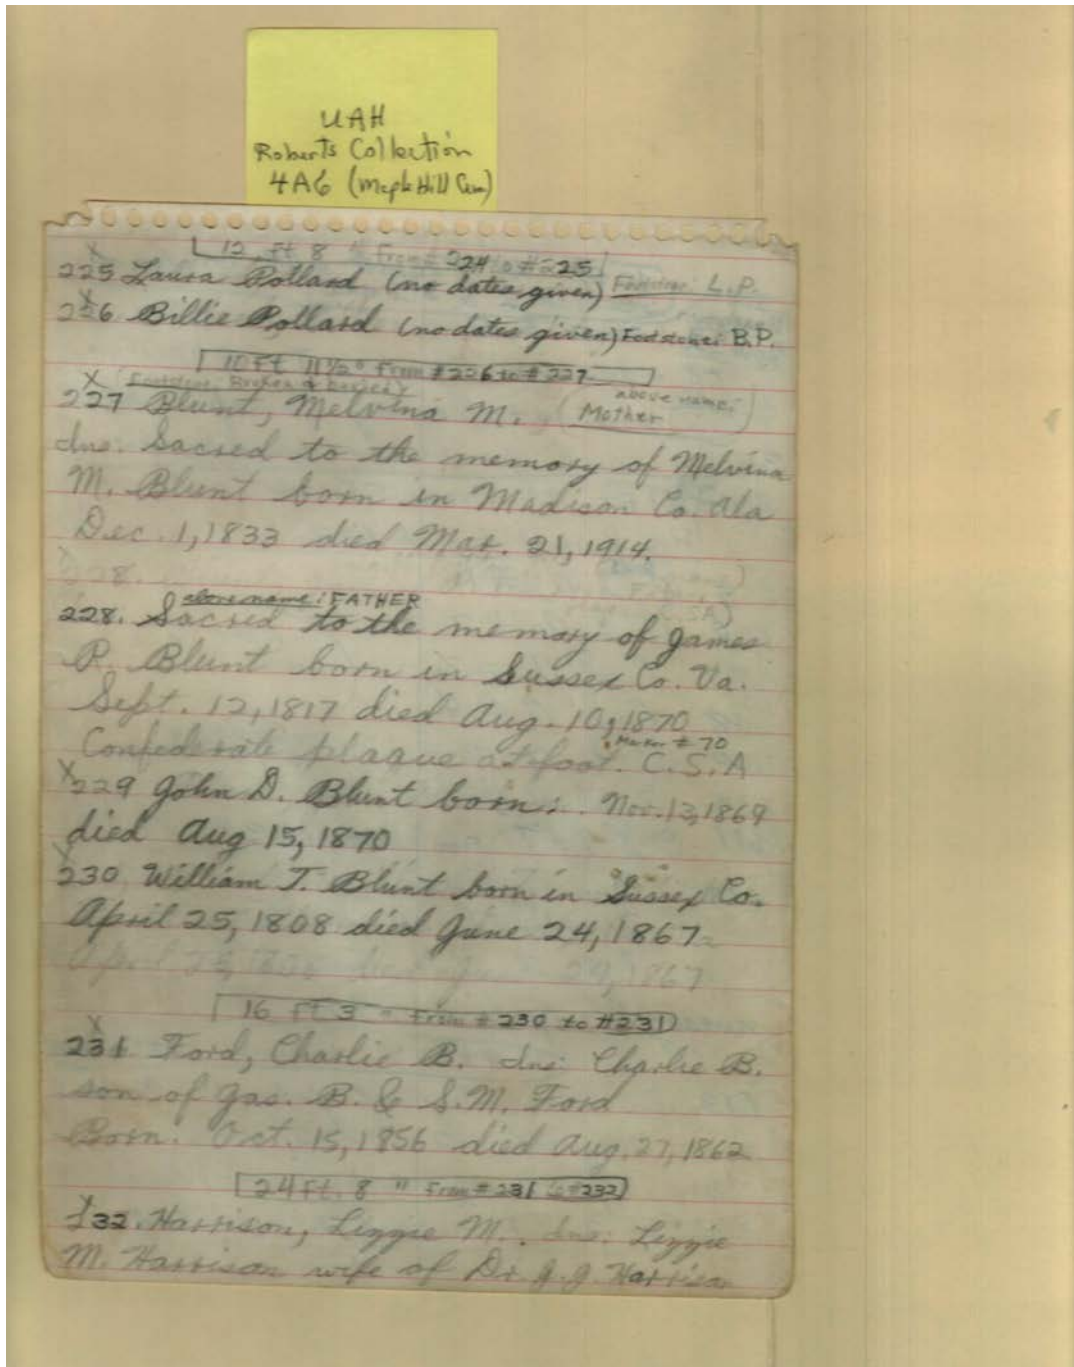 UAH
Roberts Collection
4A6 (Maple Hill Cem)
12 ft 8 " From # 224 to # 225
225 Laura Pollard (no dates given) Footstone: L.P.
226 Billie Pollard (no dates given) Footstone: B.P.
10 Ft 11 1/2 " From # 226 to # 227
X (Footstone Broken & buried)
above name:
227 Blunt, Melvina M. (Mother)
Ins: Sacred to the memory of Melvina
M. Blunt born in Madison Co. Ala
Dec. 1, 1833 died Mar. 21, 1914.
228.
above name: FATHER
228. Sacred to the memory of James
P. Blunt born in Sussex Co. Va.
Sept. 12, 1817 died Aug. 10, 1870
Marker # 70
Confederate plaque at foot. C.S.A
X229 John D. Blunt born: Nov. 13, 1869
died Aug 15, 1870
X230 William T. Blunt born in Sussex Co.
April 25, 1808 died June 24, 1867
16 Ft 3 " From # 230 to #231
X
231 Ford, Charlie B. Ins: Charlie B.
son of Jas. B. & S.M. Ford
Born. Oct. 15, 1856 died Aug. 27, 1862
24 Ft. 8 " From # 231 to #232
232. Harrison, Lizzie M.. Ins: Lizzie
M. Harrison wife of Dr. J.J. Harrison